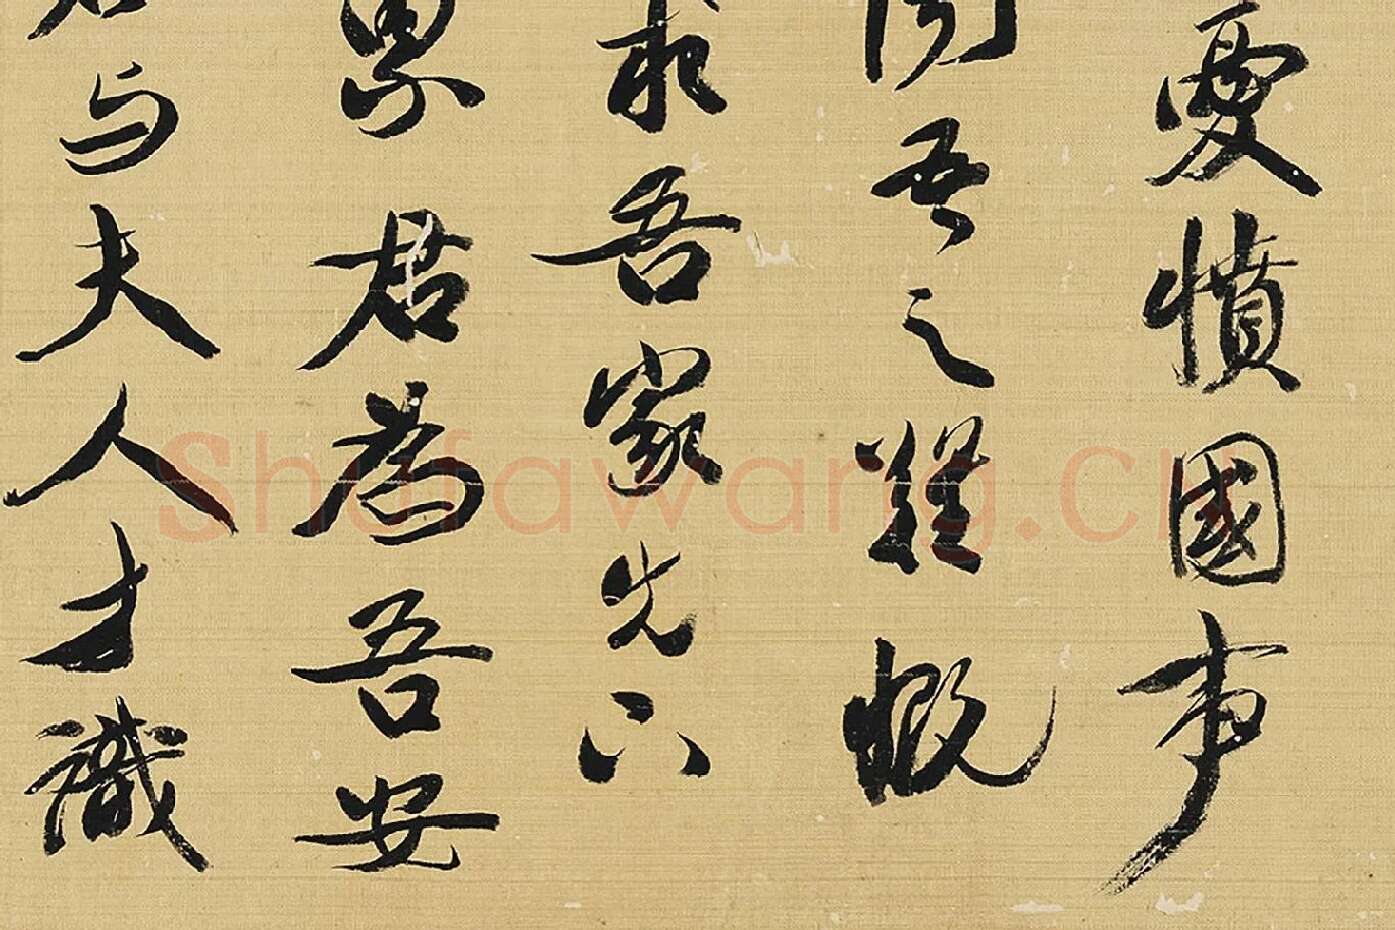 憂憤國事
之難慨
求吾家先六
君為吾安
与夫人才識
Shufawang.cn